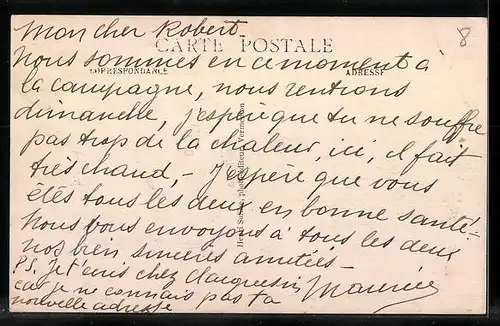 Mon cher Robert.
CARTE POSTALE
8
Nous sommes en ce moment à
CORRESPONDANCE
ADRESSE
la campagne, nous rentrons
dimanche, j'espère que tu ne souffre
pas trop de la chaleur, ici, il fait
très chaud, - J'espère que vous
êtes tous les deux en bonne santé.
Nous vous envoyons à tous les deux
nos bien sincères amitiés -
P.S. Je t'écris chez
car je ne connais pas ta
nouvelle adresse
Maurice